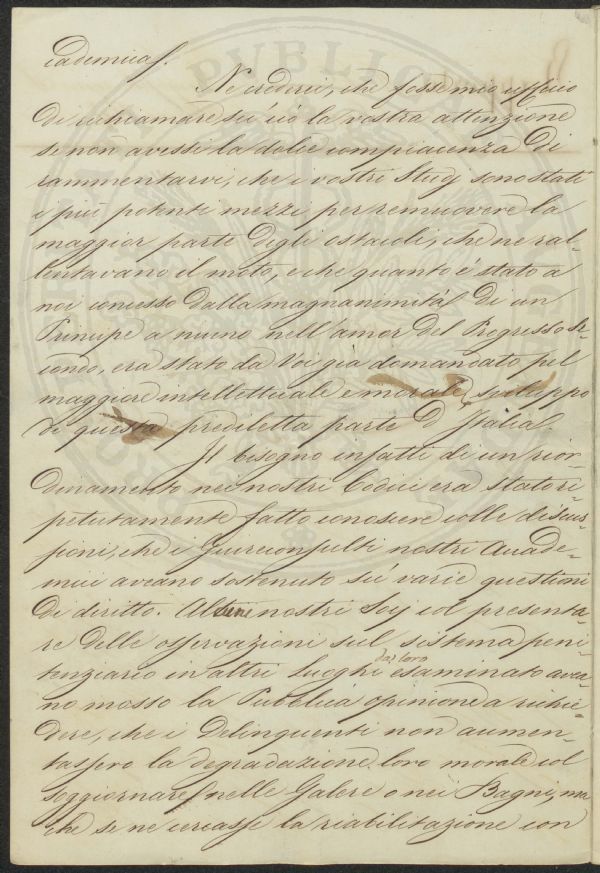 cademica.
Ne crederei, che fosse mio ufficio
di richiamare sù ciò la vostra attenzione
se non avessi la dolce compiacenza di
rammentarvi, che i vostri Studj sono stati
i più potenti mezzi per remuovere la
maggior parte degli ostacoli, che ne ral-
lentavano il moto, e che quanto è stato a
noi concesso dalla magnanimità di un
Principe a niuno nell'amor del Progresso se-
condo, era stato da Voi già domandato pel
maggiore intellettuale e morale sviluppo
di questa prediletta parte d'Italia.
Il bisogno infatti di un rior-
dinamento nei nostri Codici era stato ri-
petutamente fatto conoscere colle discus-
sioni, che i Giureconsulti nostri Accade-
mici aveano sostenuto sù varie questioni
di diritto. Altri nostri Socj col presenta-
re delle osservazioni sul sistema peni-
tenziario in altri Luoghi da loro esaminato avea-
no mosso la Pubblica opinione a richie-
dere, che i Delinquenti non aumen-
tassero la degradazione loro morale col
soggiornare nelle Galere o nei Bagni, ma
che se ne cercasse la riabilitazione con